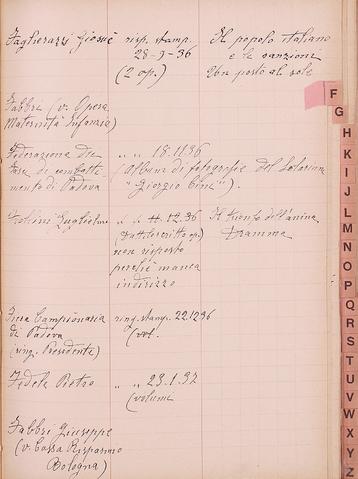 Taglierazzi Giosuè risp. stamp. Il popolo italiano
28-9-36 e le sanzioni
(2 op.) Un posto al sole
Fabbri (v. Opera
Maternità Infanzia)
Federazione dei " " 18.11.36
Fasci di
mento di Padova (Album di fotografie del
"Giorgio Cini").
Guglielmo " " 11.12.36 Il trionfo dell'anima
(Dattiloscritto op.) Dramma
non risposto
perchè manca
indirizzo
Fiera Campionaria ring. stamp. 22.12.36
di Padova (vol.
(ring. Presidente)
Fedele Pietro " " 29.1.37
(volume
Fabbri Giuseppe
(v. Cassa Risparmio
Bologna)
F
G
H
K
I
J
L
M
N
O
P
Q
R
S
T
U
V
W
X
Y
Z